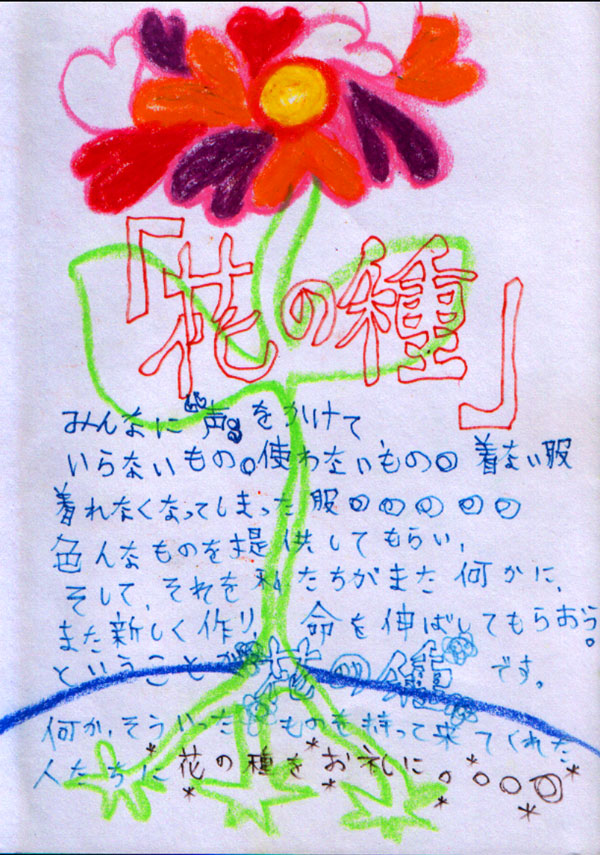 「花の種」
みんなに"声"をかけて
いらないもの。使わないもの。着ない服
着れなくなってしまった服。。。。。
色んなものを提供してもらい、
そして、それを私たちがまた何かに、
また新しく作り、命を伸ばしてもらおう。
ということが花の種です。
何か、そういったものを持って来てくれた
人たちに*花の種をお礼に。。。。